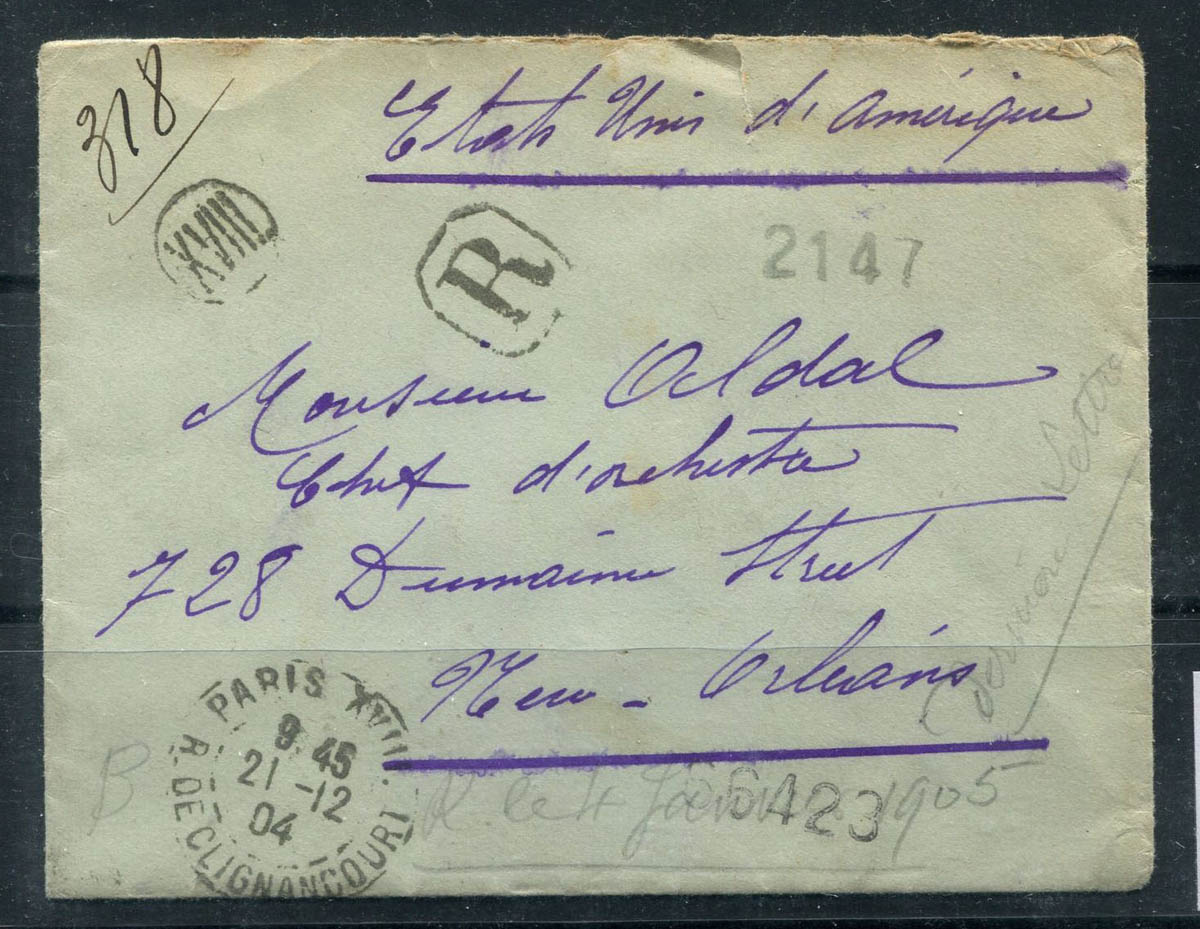 318
Etats Unis d'Amérique
XVIII
R
2147
Monsieur Oldal
Chef d'orchestre
728 Dumaine Street
New-Orléans
PARIS XVIII
9 45
21 -12
04
R. DE CLIGNANCOURT
B
R. le 4 Janvier 1905
6423
Lettre